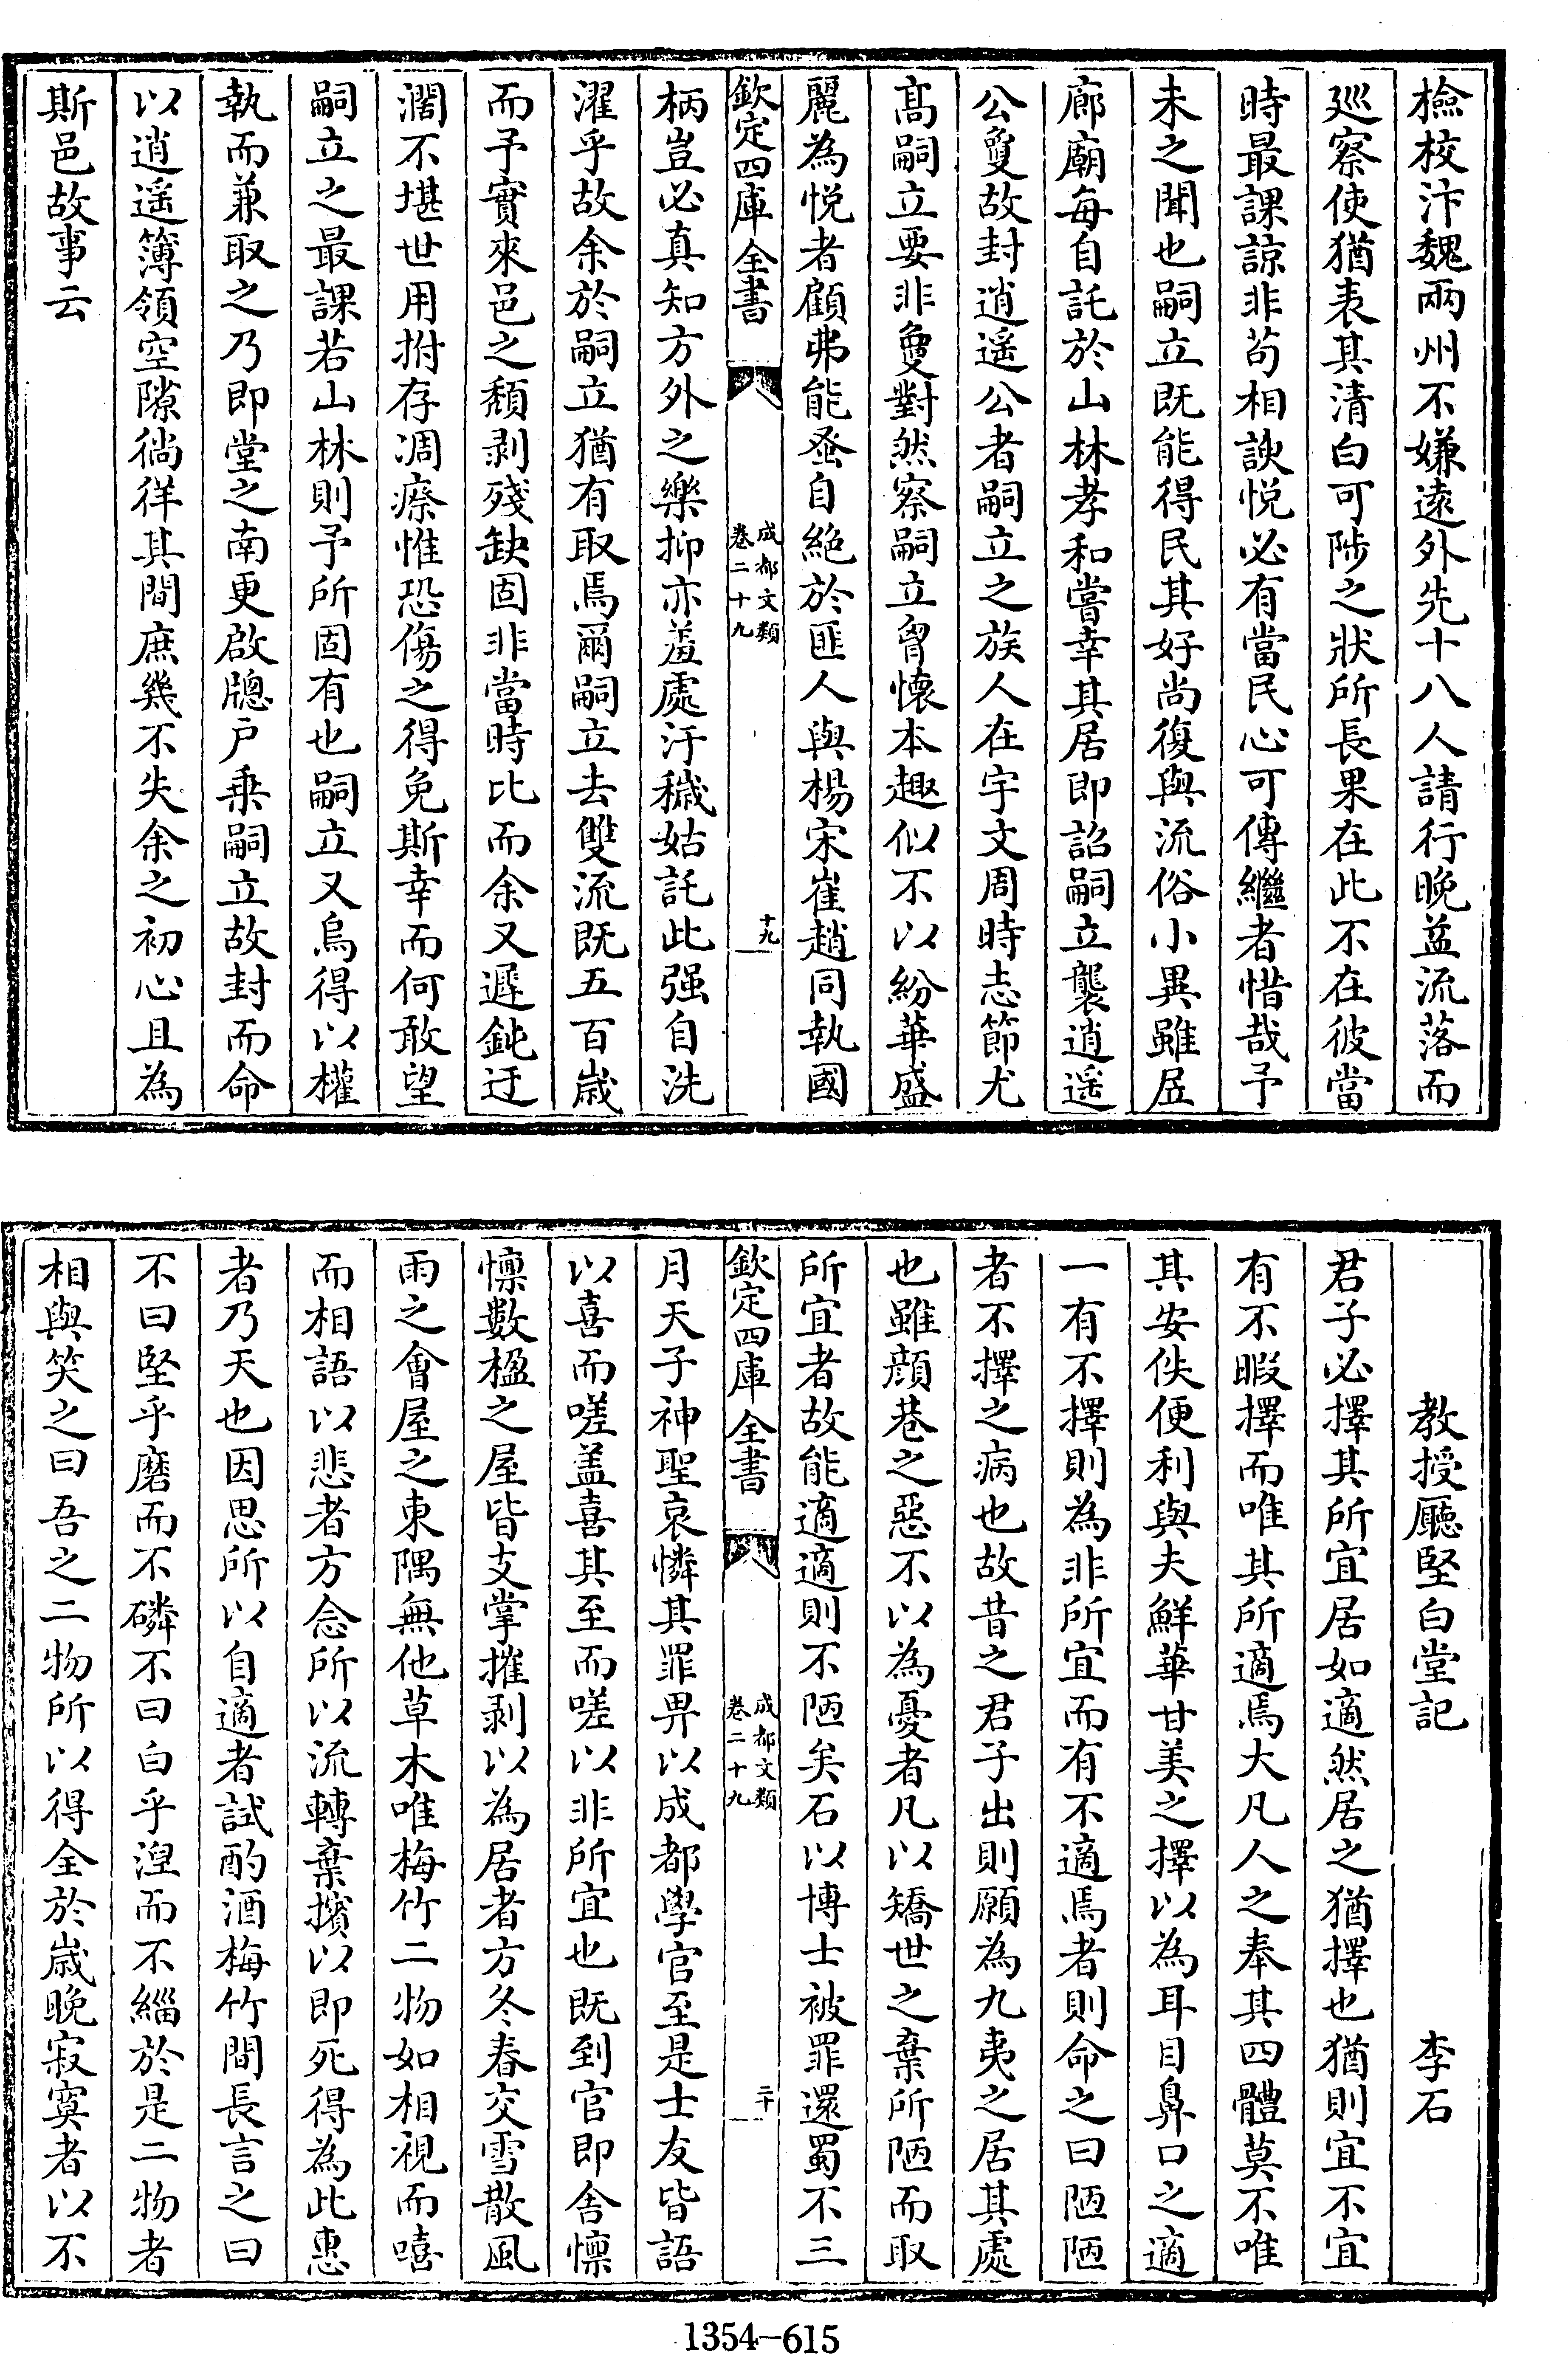 檢校汴魏兩州不嫌逺外先十八人請行晚益流落而
廵察使猶表其清白可陟之狀所長果在此不在彼當
時最課諒非苟相諛悦必有當民心可傳繼者惜哉予
未之聞也嗣立既能得民其好尚復與流俗小異雖居
廊廟每自託於山林孝和嘗幸其居即詔嗣立襲逍遥
公敻故封逍遥公者嗣立之族人在宇文周時志節尤
髙嗣立要非敻對然察嗣立胷懷本趣似不以紛華盛
麗為悦者顧弗能蚤自絶於匪人與楊宋崔趙同執國
欽定四庫全書
成都文類
卷二十九
十九
柄豈必真知方外之樂抑亦羞處汙穢姑託此强自洗
濯乎故余於嗣立猶有取焉爾嗣立去雙流既五百歲
而予實來邑之頽剥殘缺固非當時比而余又遲鈍迂
濶不堪世用拊存凋瘵惟恐傷之得免斯幸而何敢望
嗣立之最課若山林則予所固有也嗣立又烏得以權
執而兼取之乃即堂之南更啟牎户乗嗣立故封而命
以逍遥簿領空隙徜徉其間庶幾不失余之初心且為
斯邑故事云
教授廳堅白堂記 李石
君子必擇其所宜居如適然居之猶擇也猶則宜不宜
有不暇擇而唯其所適焉大凡人之奉其四體莫不唯
其安佚便利與夫鮮華甘美之擇以為耳目鼻口之適
一有不擇則為非所宜而有不適焉者則命之曰陋陋
者不擇之病也故昔之君子出則願為九夷之居其處
也雖顔巷之惡不以為憂者凡以矯世之棄所陋而取
所宜者故能適適則不陋矣石以博士被罪還蜀不三
欽定四庫全書
成都文類
卷二十九
二十
月天子神聖哀憐其罪畀以成都學官至是士友皆語
以喜而嗟盖喜其至而嗟以非所宜也既到官即舍懔
懔數楹之屋皆支掌摧剥以為居者方冬春交雪散風
雨之會屋之東隅無他草木唯梅竹二物如相視而嘻
而相語以悲者方念所以流轉棄擯以即死得為此惠
者乃天也因思所以自適者試酌酒梅竹間長言之曰
不曰堅乎磨而不磷不曰白乎涅而不緇於是二物者
相與笑之曰吾之二物所以得全於歲晚寂寞者以不
1354-615